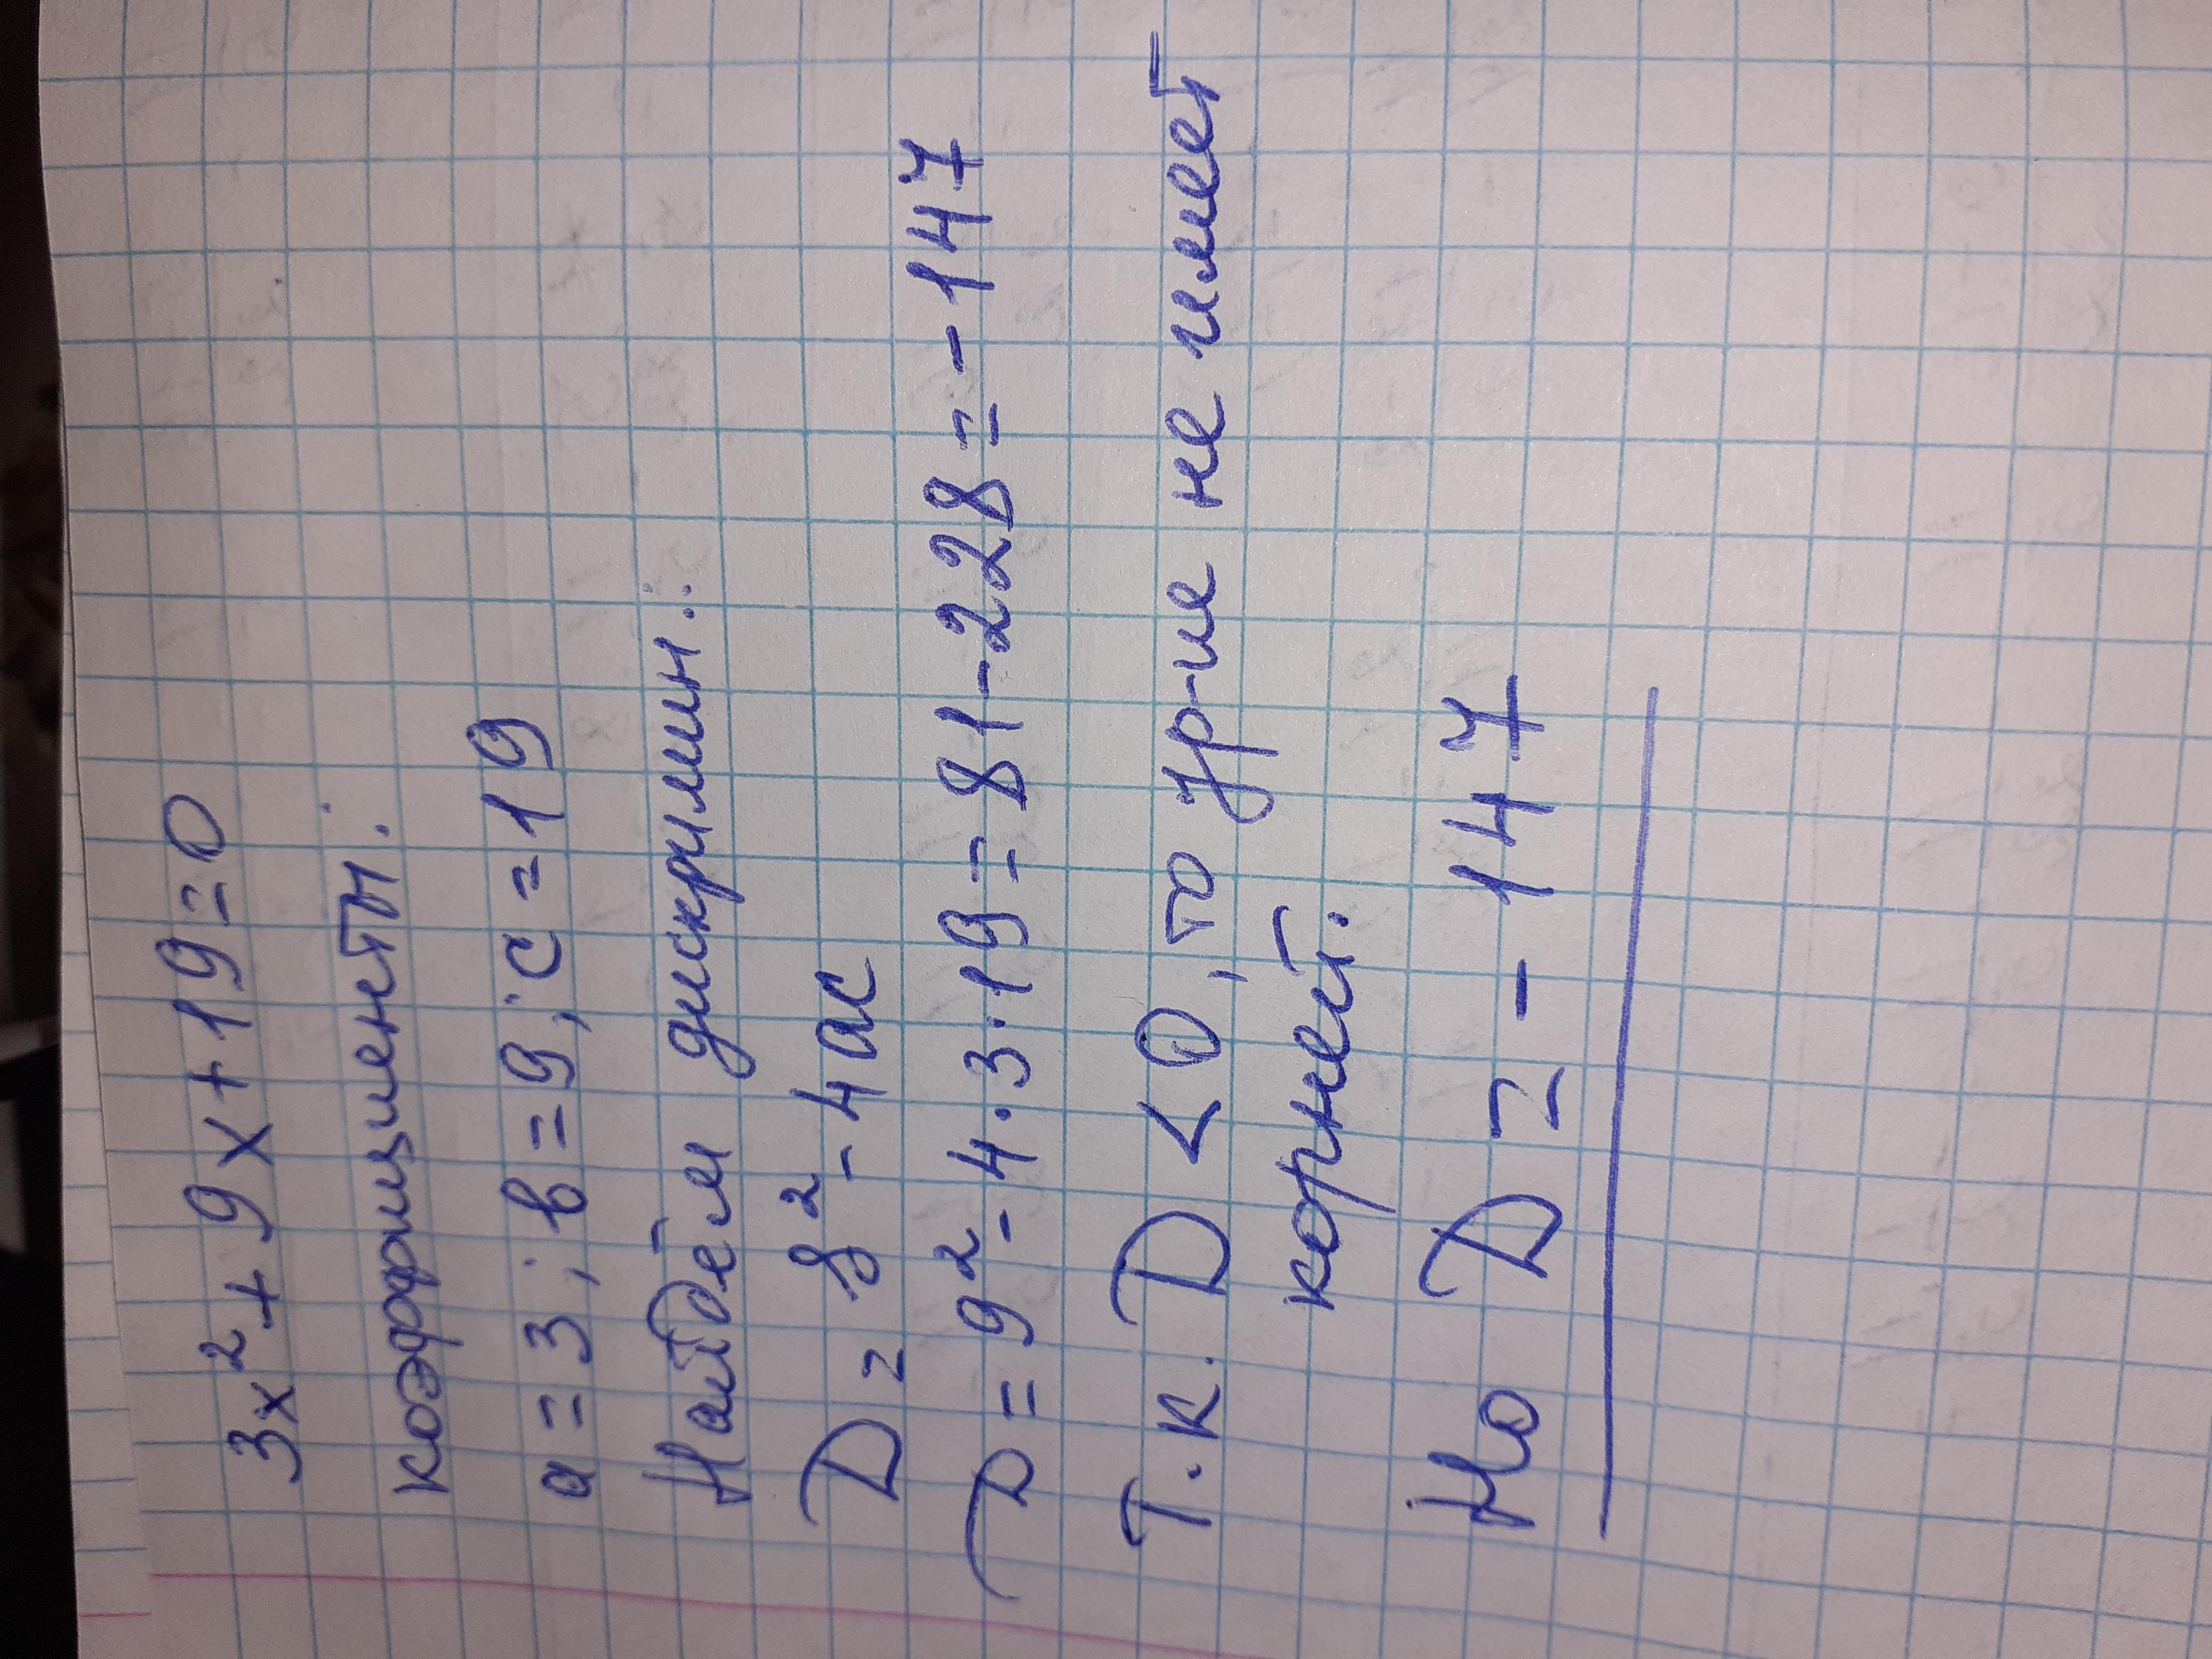 3x²+9x+19=0
коэффициенты:
a=3; в=9; c=19
Найдём дискримин.:
D=в²-4ac
D=9²-4·3·19=81-228=-147
Т.к. D<0, то ур-ие не имеет
корней.
Но D=-147